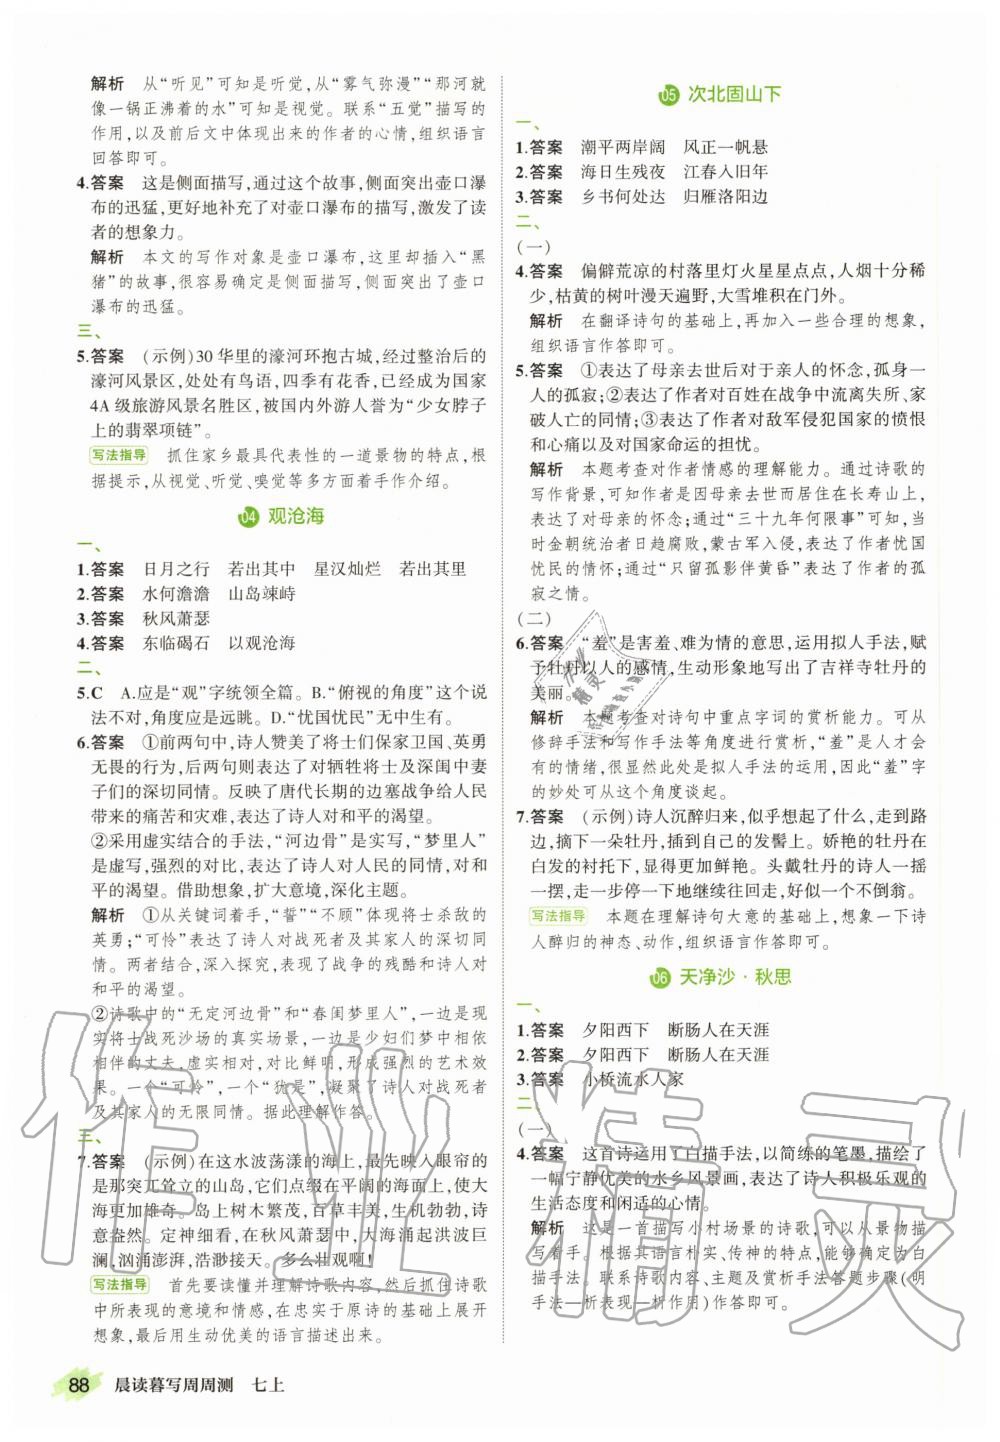 解析　从“听见”可知是听觉，从“雾气弥漫”“那河就
像一锅正沸着的水”可知是视觉。联系“五觉”描写的
作用，以及前后文中体现出来的作者的心情，组织语言
回答即可。
4.答案　这是侧面描写，通过这个故事，侧面突出壶口瀑
布的迅猛，更好地补充了对壶口瀑布的描写，激发了读
者的想象力。
解析　本文的写作对象是壶口瀑布，这里却插入“黑
猪”的故事，很容易确定是侧面描写，侧面突出了壶口
瀑布的迅猛。
三、
5.答案　(示例)30华里的濠河环抱古城，经过整治后的
濠河风景区，处处有鸟语，四季有花香，已经成为国家
4A级旅游风景名胜区，被国内外游人誉为“少女脖子
上的翡翠项链”。
写法指导　抓住家乡最具代表性的一道景物的特点，根
据提示，从视觉、听觉、嗅觉等多方面着手作介绍。
04 观沧海
一、
1.答案　日月之行　若出其中　星汉灿烂　若出其里
2.答案　水何澹澹　山岛竦峙
3.答案　秋风萧瑟
4.答案　东临碣石　以观沧海
二、
5.C　A.应是“观”字统领全篇。B.“俯视的角度”这个说
法不对，角度应是远眺。D.“忧国忧民”无中生有。
6.答案　①前两句中，诗人赞美了将士们保家卫国、英勇
无畏的行为，后两句则表达了对牺牲将士及深闺中妻
子们的深切同情。反映了唐代长期的边塞战争给人民
带来的痛苦和灾难，表达了诗人对和平的渴望。
②采用虚实结合的手法，“河边骨”是实写，“梦里人”
是虚写，强烈的对比，表达了诗人对人民的同情，对和
平的渴望。借助想象，扩大意境，深化主题。
解析　①从关键词着手，“誓”“不顾”体现将士杀敌的
英勇；“可怜”表达了诗人对战死者及其家人的深切同
情。两者结合，深入探究，表现了战争的残酷和诗人对
和平的渴望。
②诗歌中的“无定河边骨”和“春闺梦里人”，一边是现
实将士战死沙场的真实场景，一边是少妇们梦中相依
相伴的丈夫，虚实相对，对比鲜明，收到强烈的艺术效
果。一个“可怜”，一个“犹是”，凝聚了诗人对战死者
及其家人的无限同情。据此理解作答。
三、
7.答案　(示例)在这水波荡漾的海上，最先映入眼帘的
是那耸立的山岛，它们点缀在平阔的海面上，使大
海显得雄奇。岛上树木繁茂，百草丰美，生机勃勃，诗
意盎然。定神细看，在秋风萧瑟中，大海涌起洪波巨
澜，汹涌澎湃，浩渺接天。多么壮观啊！
写法指导　首先要读懂并理解诗歌内容，然后抓住诗歌
中所表现的意境和情感，在忠实于原诗的基础上展开
想象，最后用生动优美的语言描述出来。
05 次北固山下
一、
1.答案　潮平两岸阔　风正一帆悬
2.答案　海日生残夜　江春入旧年
3.答案　乡书何处达　归雁洛阳边
二、
(一)
4.答案　偏僻荒凉的村落里灯火星星点点，人烟十分稀
少，枯黄的树叶漫天遍野，大雪堆积在门外。
解析　在翻译诗句的基础上，再加入一些合理的想象，
组织语言作答即可。
5.答案　①表达了母亲去世后对于亲人的怀念，孤身一
人的孤寂；②表达了作者对百姓在战争中流离失所、家
破人亡的同情；③表达了作者对敌军侵犯国家的愤恨
和心痛以及对国家命运的担忧。
解析　本题考查对作者情感的理解能力。通过诗歌的
写作背景，可知作者是因母亲去世而居住在长寿山上，
表达了对母亲的怀念；通过“三十九年何限事”可知，当
时金朝统治者日趋腐败，蒙古军入侵，表达了作者忧国
忧民的情怀；通过“只留孤影伴黄昏”表达了作者的孤
寂之情。
(二)
6.答案　“羞”是害羞、难为情的意思，运用拟人手法，赋
予牡丹以人的感情，生动形象地写出了吉祥寺牡丹的
美丽。
解析　本题考查对诗句中重点字词的赏析能力。可从
修辞手法和写作手法等角度进行赏析，“羞”是人才会
有的情绪，很显然此处是拟人手法的运用，因此“羞”字
的妙处可从这个角度谈起。
7.答案　(示例)诗人沉醉归来，似乎想起了什么，走到路
边，摘下一朵牡丹，插到自己的发髻上。娇艳的牡丹在
白发的衬托下，显得更加鲜艳。头戴牡丹的诗人一摇
一摆，走一步停一下地继续往回走，好似一个不倒翁。
写法指导　本题在理解诗句大意的基础上，想象一下诗
人醉归的神态、动作，组织语言作答即可。
06 天净沙·秋思
一、
1.答案　夕阳西下　断肠人在天涯
2.答案　夕阳西下　断肠人在天涯
3.答案　小桥流水人家
二、
(一)
4.答案　这首诗运用了白描手法，以简练的笔墨，描绘了
一幅宁静优美的水乡风景画，表达了诗人积极乐观的
生活态度和闲适的心情。
解析　这是一首描写小村场景的诗歌，可以从景物描
写着手。根据其语言朴实、传神的特点，能够确定为白
描手法。联系诗歌内容、主题及赏析手法答题步骤(明
手法—析表现—析作用)作答即可。
88　晨读暮写周周测　七上
作业精灵